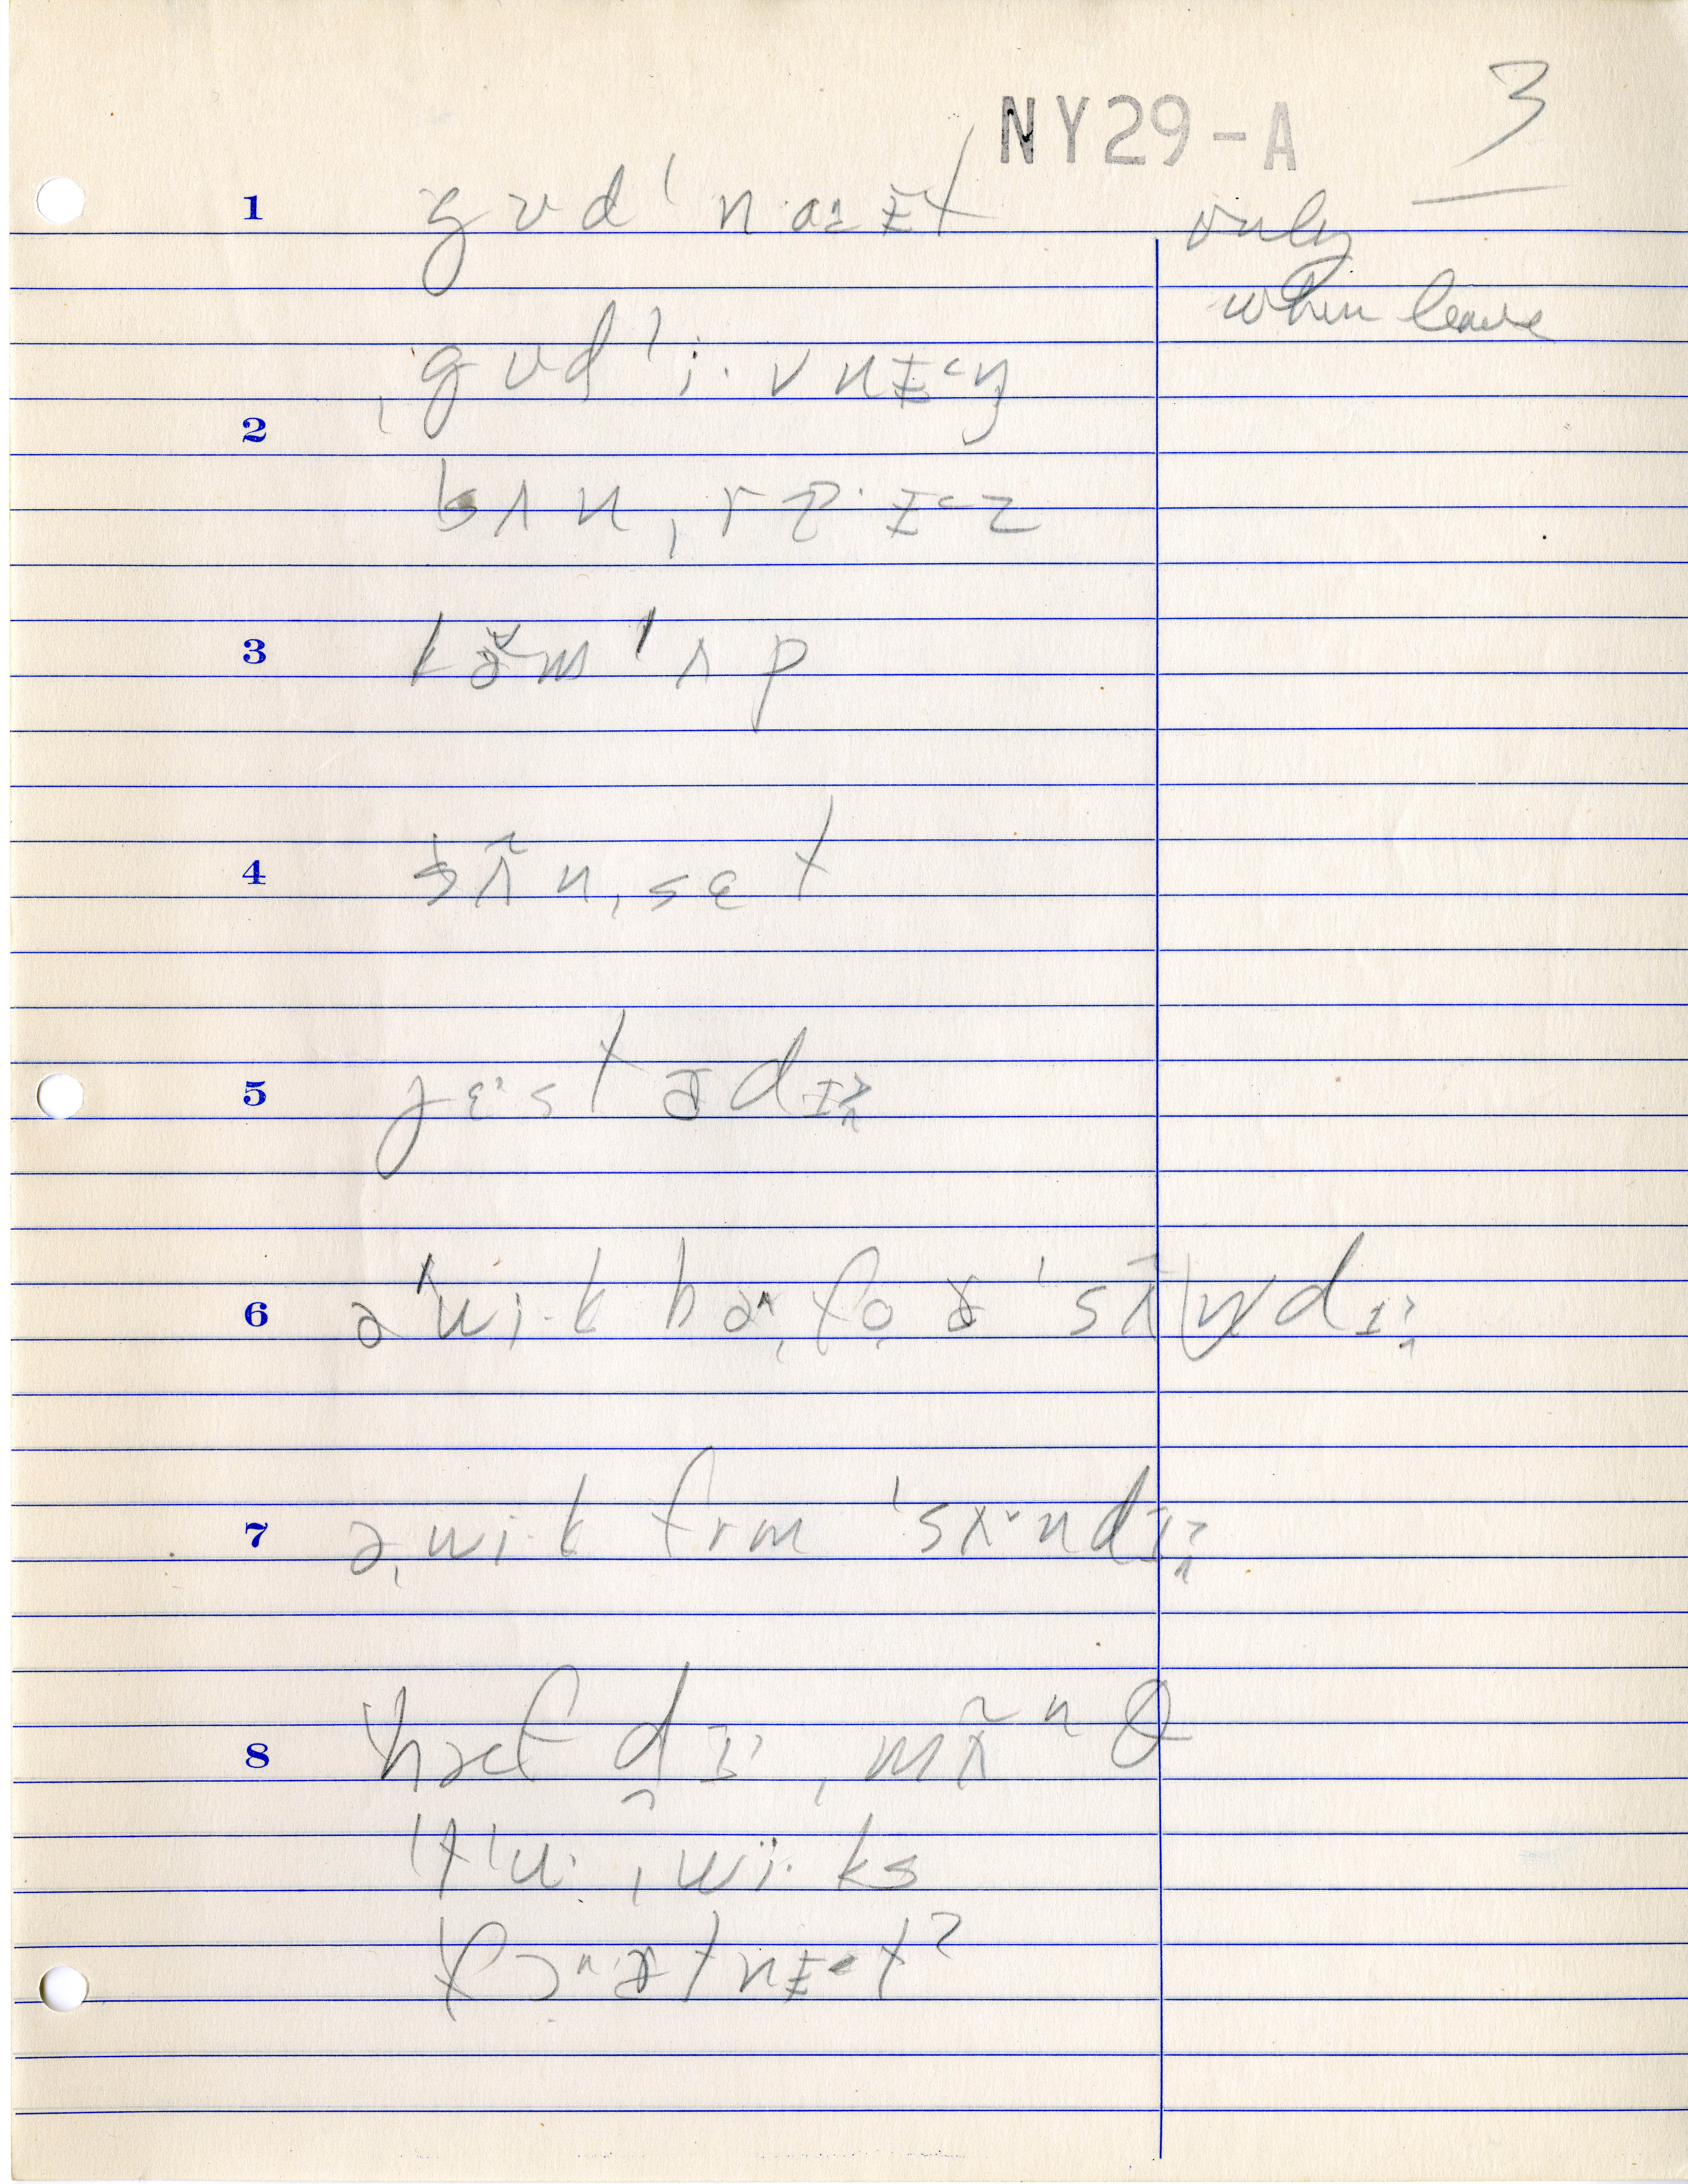 NY29-A 3
1 gʊdˈnaːɪt only
when leave
ˌgʊdˈi·vnɪ˂ŋ
2
sʌnˌr ɪ˂z
3 kəmˈʌp
4 sʌ̃nˌsɛt
5 jɛ˒stədɪ
6 əˈwi·k bəˌfo ɚ ˈsʌ̃ndɪ
7 əˌwi·k frm ˈsʌndɪ
8 ˈhæf d ɪ ˌmʌ̃ⁿθ
ˈtˈu· ˌwi·ks
ˈfɔɚtnɪtˀ